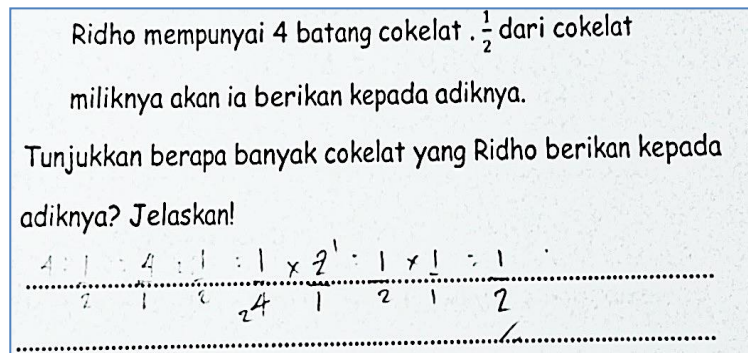 Ridho mempunyai 4 batang cokelat . 1/2 dari cokelat
miliknya akan ia berikan kepada adiknya.
Tunjukkan berapa banyak cokelat yang Ridho berikan kepada
adiknya? Jelaskan!
4 : 1/2 : 4/1 : 1/2 : 1/₂4 × 2¹/1 : 1/2 × 1/1 : 1/2